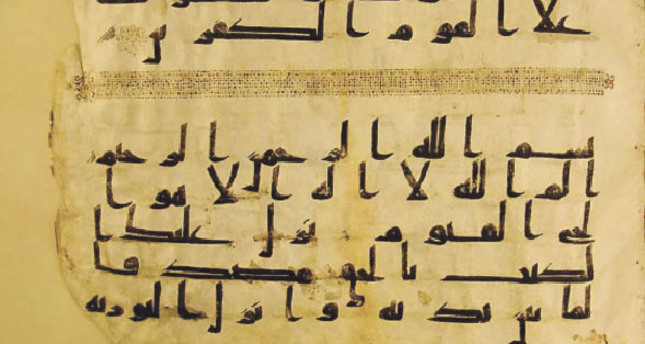 علا القوم الكفرين
بسم الله الرحمن الرحيم
الم الله لا اله الا هو ا
لحي القيوم نزل عليك ا
لكتب بالحق مصدقا
لما بين يديه وانزل التوريه